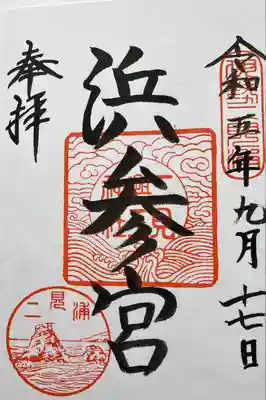 令和五年九月十七日
浜参宮
奉拝
二見浦